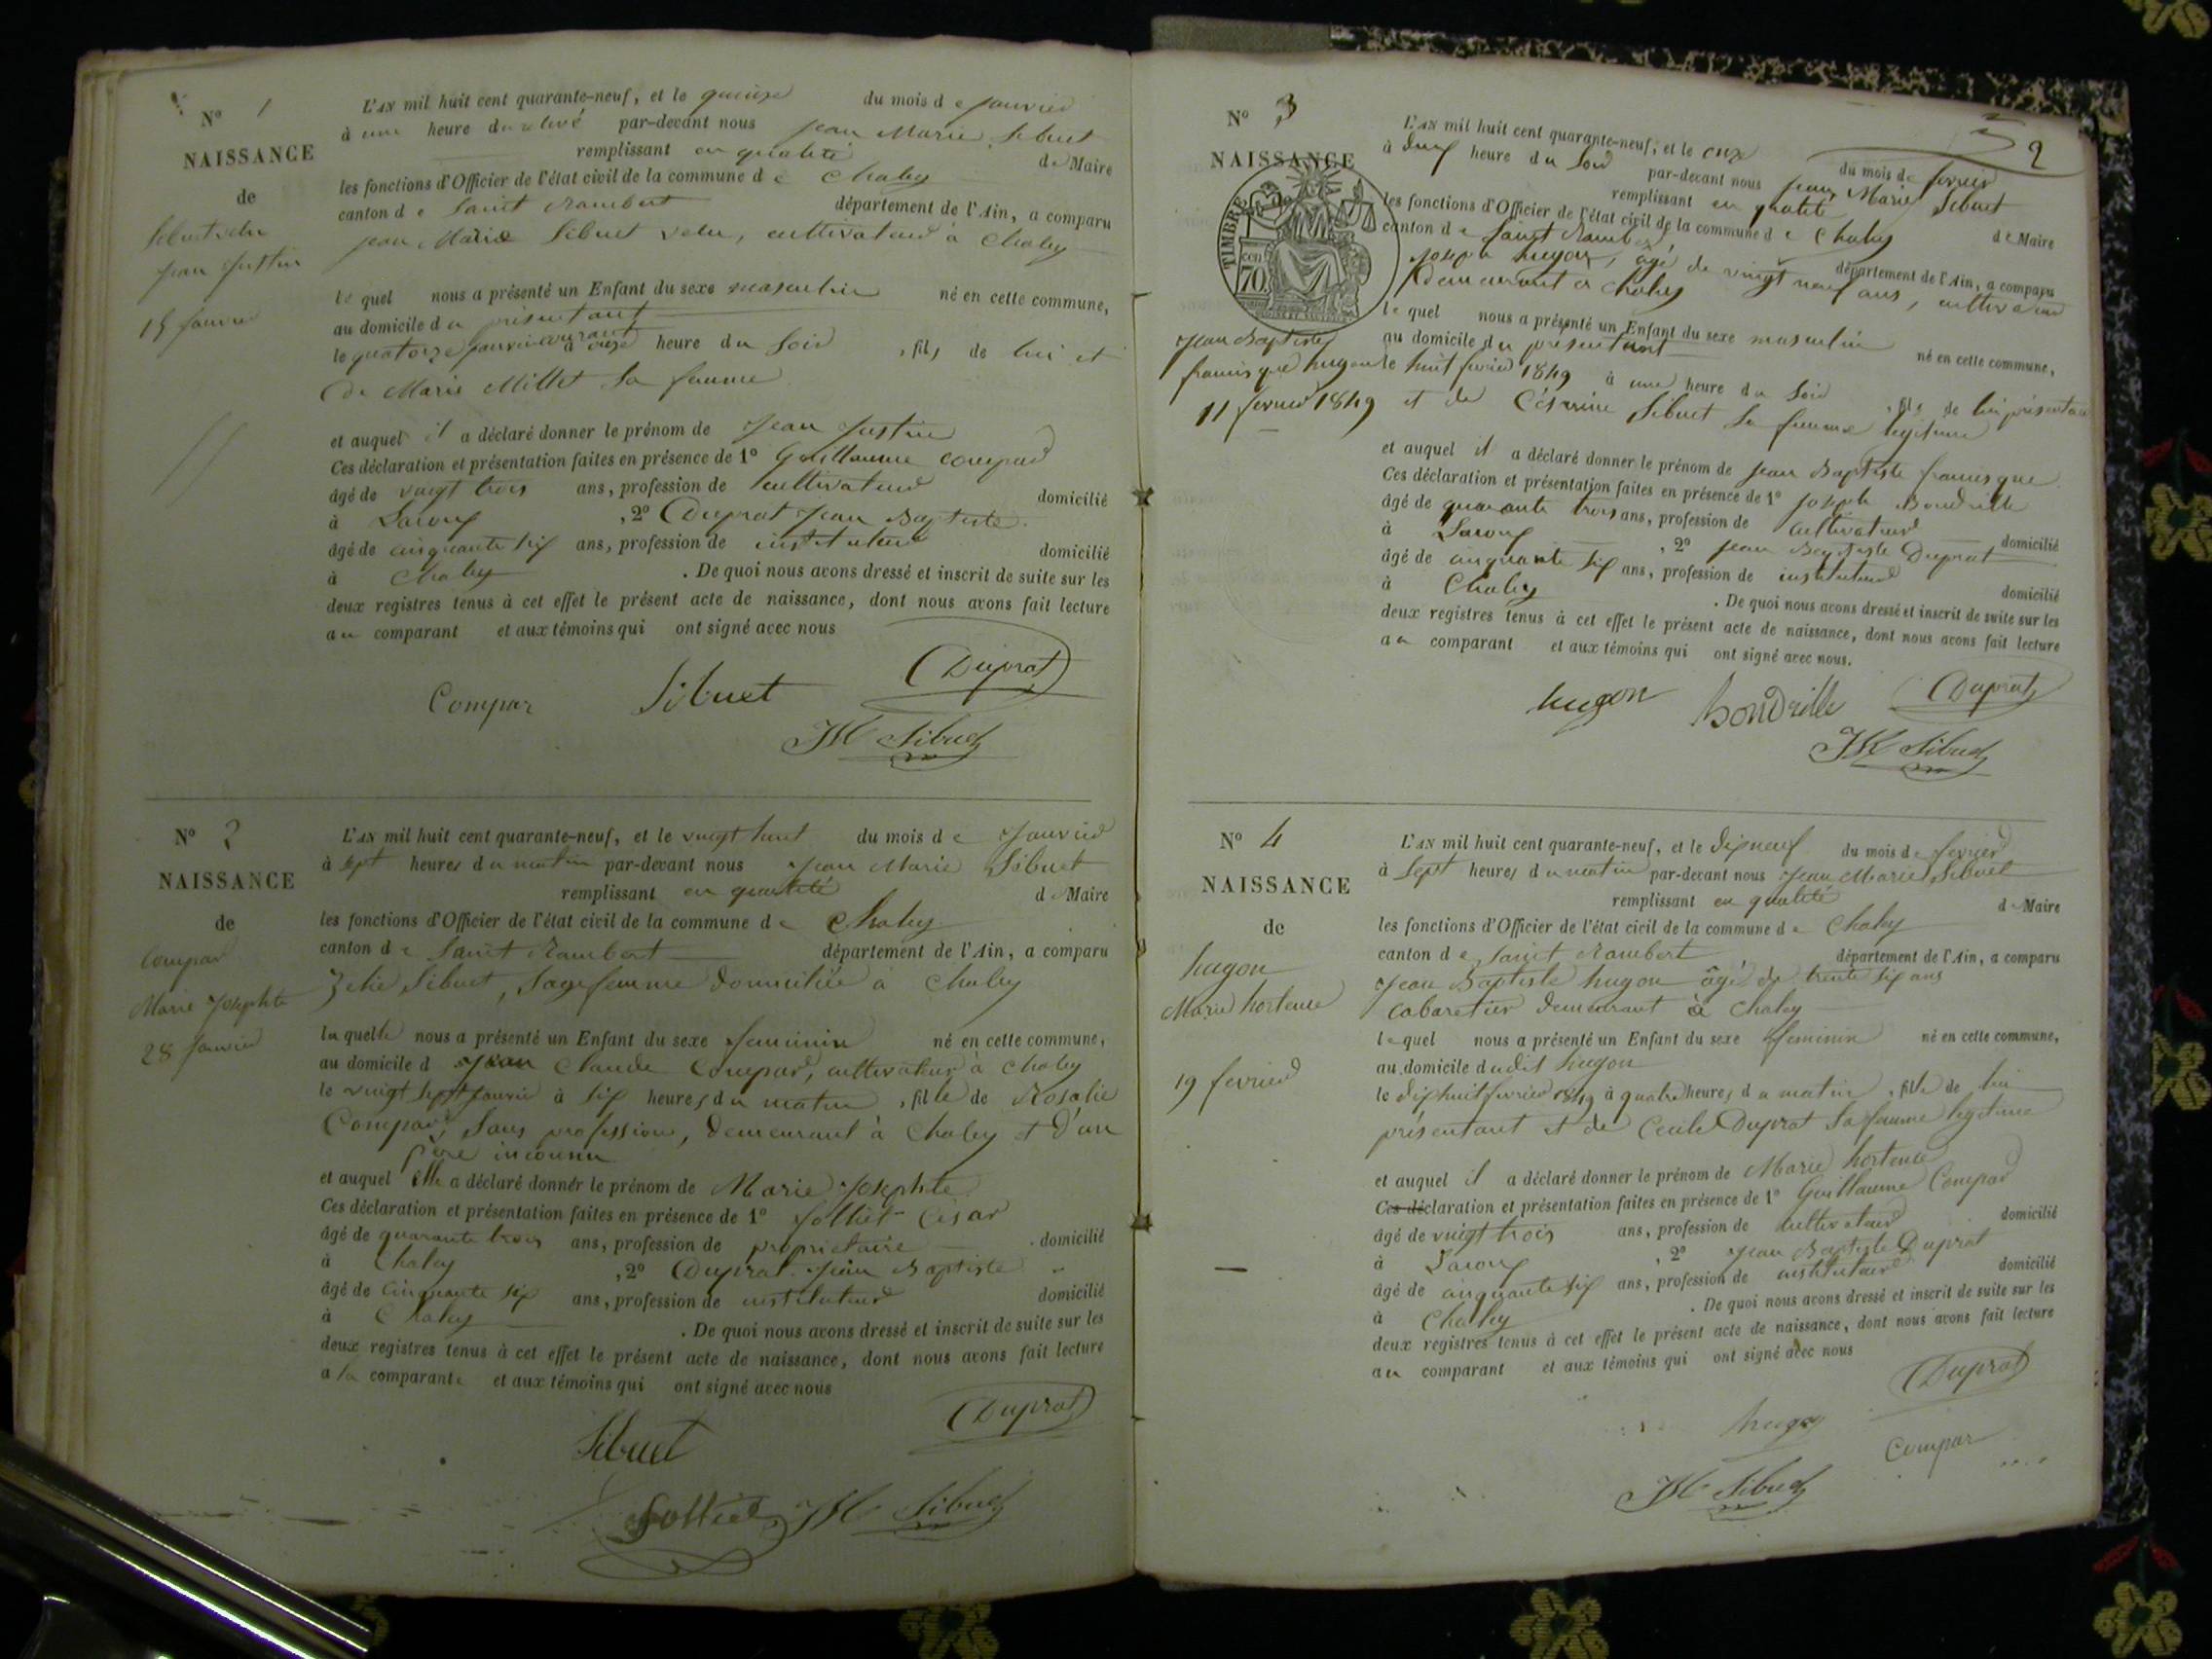 N° 1
NAISSANCE
de
Sibuet velu
Jean Justin
15 janvier
L'AN mil huit cent quarante-neuf, et le quinze du mois de janvier
à une heure du relevé par-devant nous Jean Marie Sibuet
remplissant en qualité de Maire
les fonctions d'Officier de l'état civil de la commune de Chaley
canton de Saint Rambert département de l'Ain, a comparu
Jean Marie Sibuet velu, cultivateur à Chaley
lequel nous a présenté un Enfant du sexe masculin né en cette commune,
au domicile du présentant
le quatorze janvier courant à onze heure du soir, fils de lui et
de Marie Millet sa femme
et auquel il a déclaré donner le prénom de Jean Justin
Ces déclaration et présentation faites en présence de 1° Guillaume Compar
âgé de vingt trois ans, profession de cultivateur domicilié
à Lacoux, 2° Duprat Jean Baptiste
âgé de cinquante six ans, profession de instituteur domicilié
à Chaley. De quoi nous avons dressé et inscrit de suite sur les
deux registres tenus à cet effet le présent acte de naissance, dont nous avons fait lecture
au comparant et aux témoins qui ont signé avec nous
Compar Sibuet Duprat
JM Sibuet
N° 2
NAISSANCE
de
Compar
Marie Josephte
28 janvier
L'AN mil huit cent quarante-neuf, et le vingt huit du mois de Janvier
à sept heures du matin par-devant nous Jean Marie Sibuet
remplissant en qualité de Maire
les fonctions d'Officier de l'état civil de la commune de Chaley
canton de Saint Rambert département de l'Ain, a comparu
Zelie Sibuet, Sagefemme domiciliée à Chaley
laquelle nous a présenté un Enfant du sexe feminin né en cette commune,
au domicile d Jean Claude Compar, cultivateur à Chaley
le vingt sept janvier à six heures du matin, fille de Rosalie
Compar, sans profession, demeurant à Chaley et d'un
père inconnu
et auquel elle a déclaré donner le prénom de Marie Josephte
Ces déclaration et présentation faites en présence de 1° Folliet César
âgé de quarante trois ans, profession de propriétaire domicilié
à Chaley, 2° Duprat Jean Baptiste
âgé de cinquante six ans, profession de instituteur domicilié
à Chaley. De quoi nous avons dressé et inscrit de suite sur les
deux registres tenus à cet effet le présent acte de naissance, dont nous avons fait lecture
a la comparante et aux témoins qui ont signé avec nous
Sibuet Duprat
Folliet JM Sibuet
2
N° 3
NAISSANCE
TIMBRE
70
Jean Baptiste
francisque hugon
11 fevrier 1849
L'AN mil huit cent quarante-neuf, et le onze du mois de fevrier
à deux heure du Soir par-devant nous Jean Marie Sibuet
remplissant en qualité de Maire
les fonctions d'Officier de l'état civil de la commune de Chaley
canton de Saint Rambert département de l'Ain, a comparu
Joseph hugon, âgé de vingt neuf ans, cultivateur
demeurant à Chaley
lequel nous a présenté un Enfant du sexe masculin né en cette commune,
au domicile du présentant
le huit fevrier 1849 à une heure du Soir, fils de lui présentant
et de Césarine Sibuet sa femme légitime
et auquel il a déclaré donner le prénom de Jean Baptiste francisque
Ces déclaration et présentation faites en présence de 1° Joseph Bondrille
âgé de quarante trois ans, profession de cultivateur domicilié
à Lacoux, 2° Jean Baptiste Duprat
âgé de cinquante six ans, profession de instituteur domicilié
à Chaley. De quoi nous avons dressé et inscrit de suite sur les
deux registres tenus à cet effet le présent acte de naissance, dont nous avons fait lecture
au comparant et aux témoins qui ont signé avec nous.
hugon Bondrille Duprat
JM Sibuet
N° 4
NAISSANCE
de
hugon
Marie hortense
19 fevrier
L'AN mil huit cent quarante-neuf, et le dixneuf du mois de fevrier
à sept heures du matin par-devant nous Jean Marie Sibuet
remplissant en qualité de Maire
les fonctions d'Officier de l'état civil de la commune de Chaley
canton de Saint Rambert département de l'Ain, a comparu
Jean Baptiste hugon âgé de trente six ans
cabaretier demeurant à Chaley
lequel nous a présenté un Enfant du sexe feminin né en cette commune,
au domicile dudit hugon
le dixhuit fevrier 1849 à quatre heures du matin, fille de lui
présentant et de Cecile Duprat sa femme légitime
et auquel il a déclaré donner le prénom de Marie hortense
Ces déclaration et présentation faites en présence de 1° Guillaume Compar
âgé de vingt trois ans, profession de cultivateur domicilié
à Lacoux, 2° Jean Baptiste Duprat
âgé de cinquante six ans, profession de instituteur domicilié
à Chaley. De quoi nous avons dressé et inscrit de suite sur les
deux registres tenus à cet effet le présent acte de naissance, dont nous avons fait lecture
au comparant et aux témoins qui ont signé avec nous
Duprat
hugon Compar
JM Sibuet